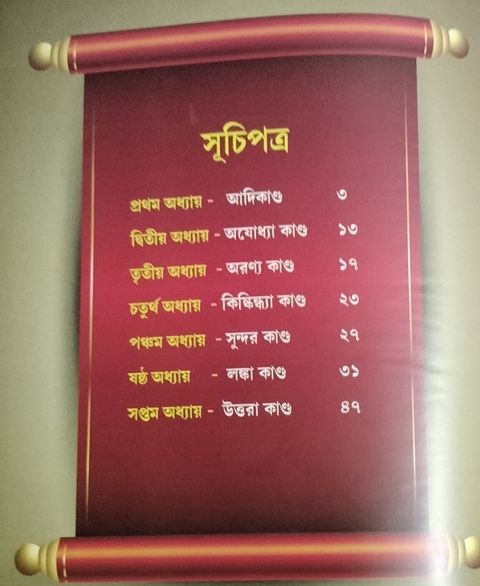 সূচিপত্র
প্রথম অধ্যায় - আদিকাণ্ড ৩
দ্বিতীয় অধ্যায় - অযোধ্যা কাণ্ড ১৩
তৃতীয় অধ্যায় - অরণ্য কাণ্ড ১৭
চতুর্থ অধ্যায় - কিষ্কিন্ধ্যা কাণ্ড ২৩
পঞ্চম অধ্যায় - সুন্দর কাণ্ড ২৭
ষষ্ঠ অধ্যায় - লঙ্কা কাণ্ড ৩১
সপ্তম অধ্যায় - উত্তরা কাণ্ড ৪৭